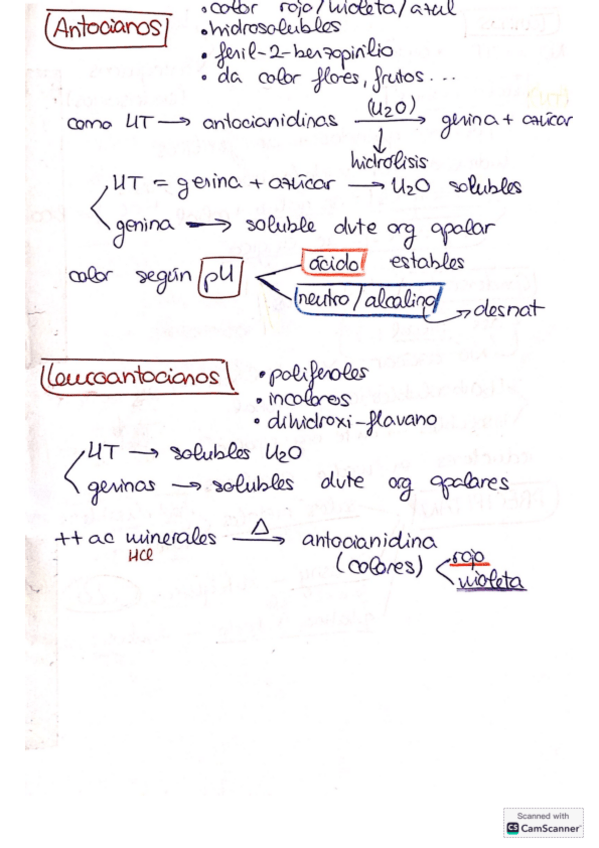 • color rojo/violeta/azul
Antocianos
• hidrosolubles
• fenil-2-benzopirilio
• da color flores, frutos...
como HT → antocianidinas (H2O) → genina + azúcar
hidrólisis
HT = genina + azúcar → H2O solubles
genina → soluble dvte org apolar
color según pH
ácido estables
neutro/alcalino → desnat
Leucoantocianos
• polifenoles
• incoloros
• dihidroxi-flavano
HT → solubles H2O
geninas → solubles dvte org apolares
++ ac minerales Δ → antocianidina
HCl
(colores) rojo
violeta
Scanned with
CS CamScanner